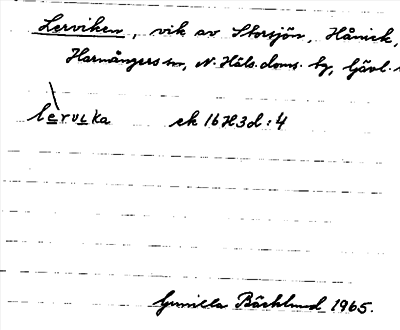 Lerviken, vik av Storsjön, Hånick,
Harmångers sn, N. Häls. doms. by, Gävl.
lervika ek 16H3d:4
Gunilla Bäcklund 1965.